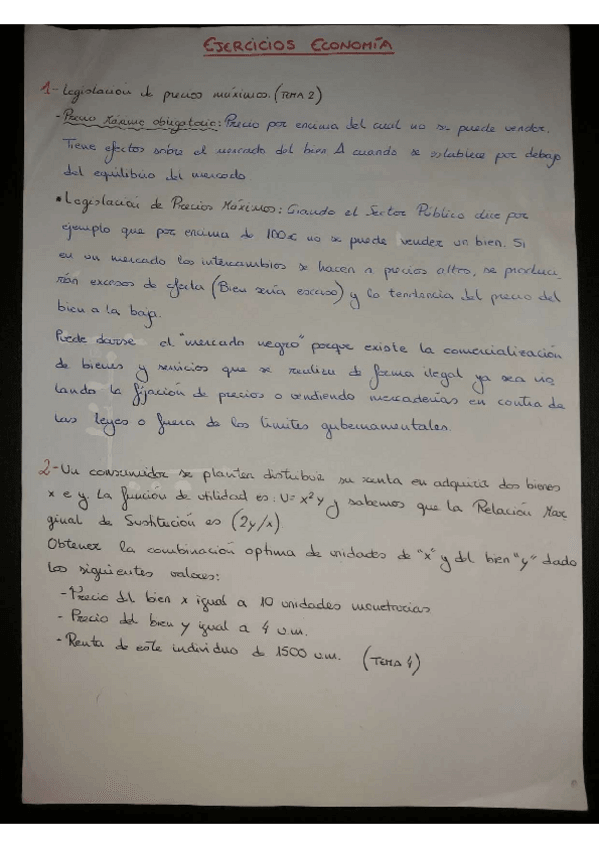 EJERCICIOS ECONOMÍA
1- Legislación de precios máximos. (TEMA 2)
- Precio Máximo obligatorio: Precio por encima del cual no se puede vender.
Tiene efectos sobre el mercado del bien A cuando se establece por debajo
del equilibrio del mercado
• Legislación de Precios Máximos: Cuando el Sector Público dice por
ejemplo que por encima de 100€ no se puede vender un bien. Si
en un mercado los intercambios se hacen a precios altos, se produci-
rán excesos de oferta (Bien sería escaso) y la tendencia del precio del
bien a la baja.
Puede darse el "mercado negro" porque existe la comercialización
de bienes y servicios que se realiza de forma ilegal ya sea vio
lando la fijación de precios o vendiendo mercaderías en contra de
las leyes o fuera de los límites gubernamentales.
2- Un consumidor se plantea distribuir su renta en adquirir dos bienes
x e y. La función de utilidad es: U= x²y y sabemos que la Relación Mar
ginal de Sustitución es (2y/x).
Obtener la combinación optima de unidades de "x" y del bien "y" dado
los siguientes valores:
- Precio del bien x igual a 10 unidades monetarias
- Precio del bien y igual a 4 u.m.
- Renta de este individuo de 1500 u.m. (TEMA 4)